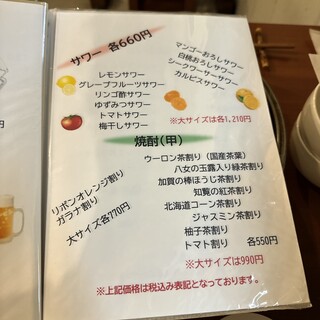 サワー 各660円
レモンサワー
グレープフルーツサワー
リンゴ酢サワー
ゆずみつサワー
トマトサワー
梅干しサワー
マンゴーおろしサワー
白桃おろしサワー
シークワーサーサワー
カルピスサワー
※大サイズは各1,210円
焼酎(甲)
ウーロン茶割り（国産茶葉）
八女の玉露入り緑茶割り
加賀の棒ほうじ茶割り
知覧の紅茶割り
北海道コーン茶割り
ジャスミン茶割り
柚子茶割り
トマト割り 各550円
※大サイズは990円
リボンオレンジ割り
ガラナ割り
大サイズ各770円
※上記価格は税込み表記となっております。